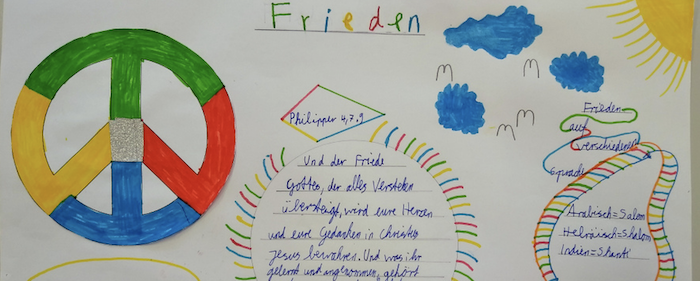 Frieden
Philipper 4,7.9
Und der Friede
Gottes, der alles Verstehen
übersteigt, wird eure Herzen
und eure Gedanken in Christus
Jesus bewahren. Und was ihr
gelernt und angenommen, gehört
Frieden
auf
verschiedenen
Sprache
Arabisch=Salam
Hebräisch=Shalom
Indien=Shanti